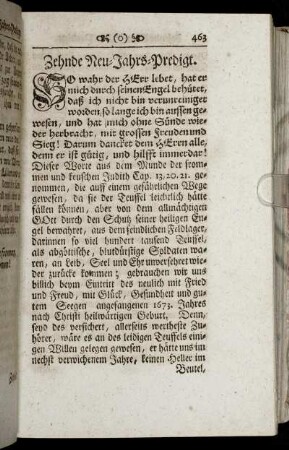 (0) 463
Zehnde Neu-Jahrs-Predigt.
SO wahr der HErr lebet, hat er
mich durch seinem Engel behütet,
daß ich nicht bin verunreiniget
worden so lange ich bin aussen ge-
wesen, und hat mich ohne Sünde wie-
der herbracht, mit grossen Freuden und
Sieg! Darum dancket dem HErrn alle,
denn er ist gütig, und hilfft immerdar!
Dieser Worte aus dem Munde der from-
men und keuschen Judith Cap. 13. 20. 21. ge-
nommen, die auff einem gefährlichen Wege
gewesen, da sie der Teuffel leichtlich hätte
fällen können, aber von dem allmächtigen
GOtt durch den Schutz seiner heiligen En-
gel bewahret, aus dem feindlichen Feldlager,
darinnen so viel hundert tausend Teuffel,
als abgöttische, blutdürstige Soldaten wa-
ren, an Leib, Seel und Ehr unversehret wie-
der zurücke kommen; gebrauchen wir uns
billich beym Eintritt des neulich mit Fried
und Freud, mit Glück, Gesundheit und gu-
tem Seegen angefangenen 1673. Jahres
nach Christi heilwärtigen Geburt. Denn,
seyd des versichert, allerseits wertheste Zu-
hörer, wäre es an des leidigen Teuffels eini-
gen Willen gelegen gewesen, er hätte uns im
nechst verwichenem Jahre, keinen Heller im
Beutel,